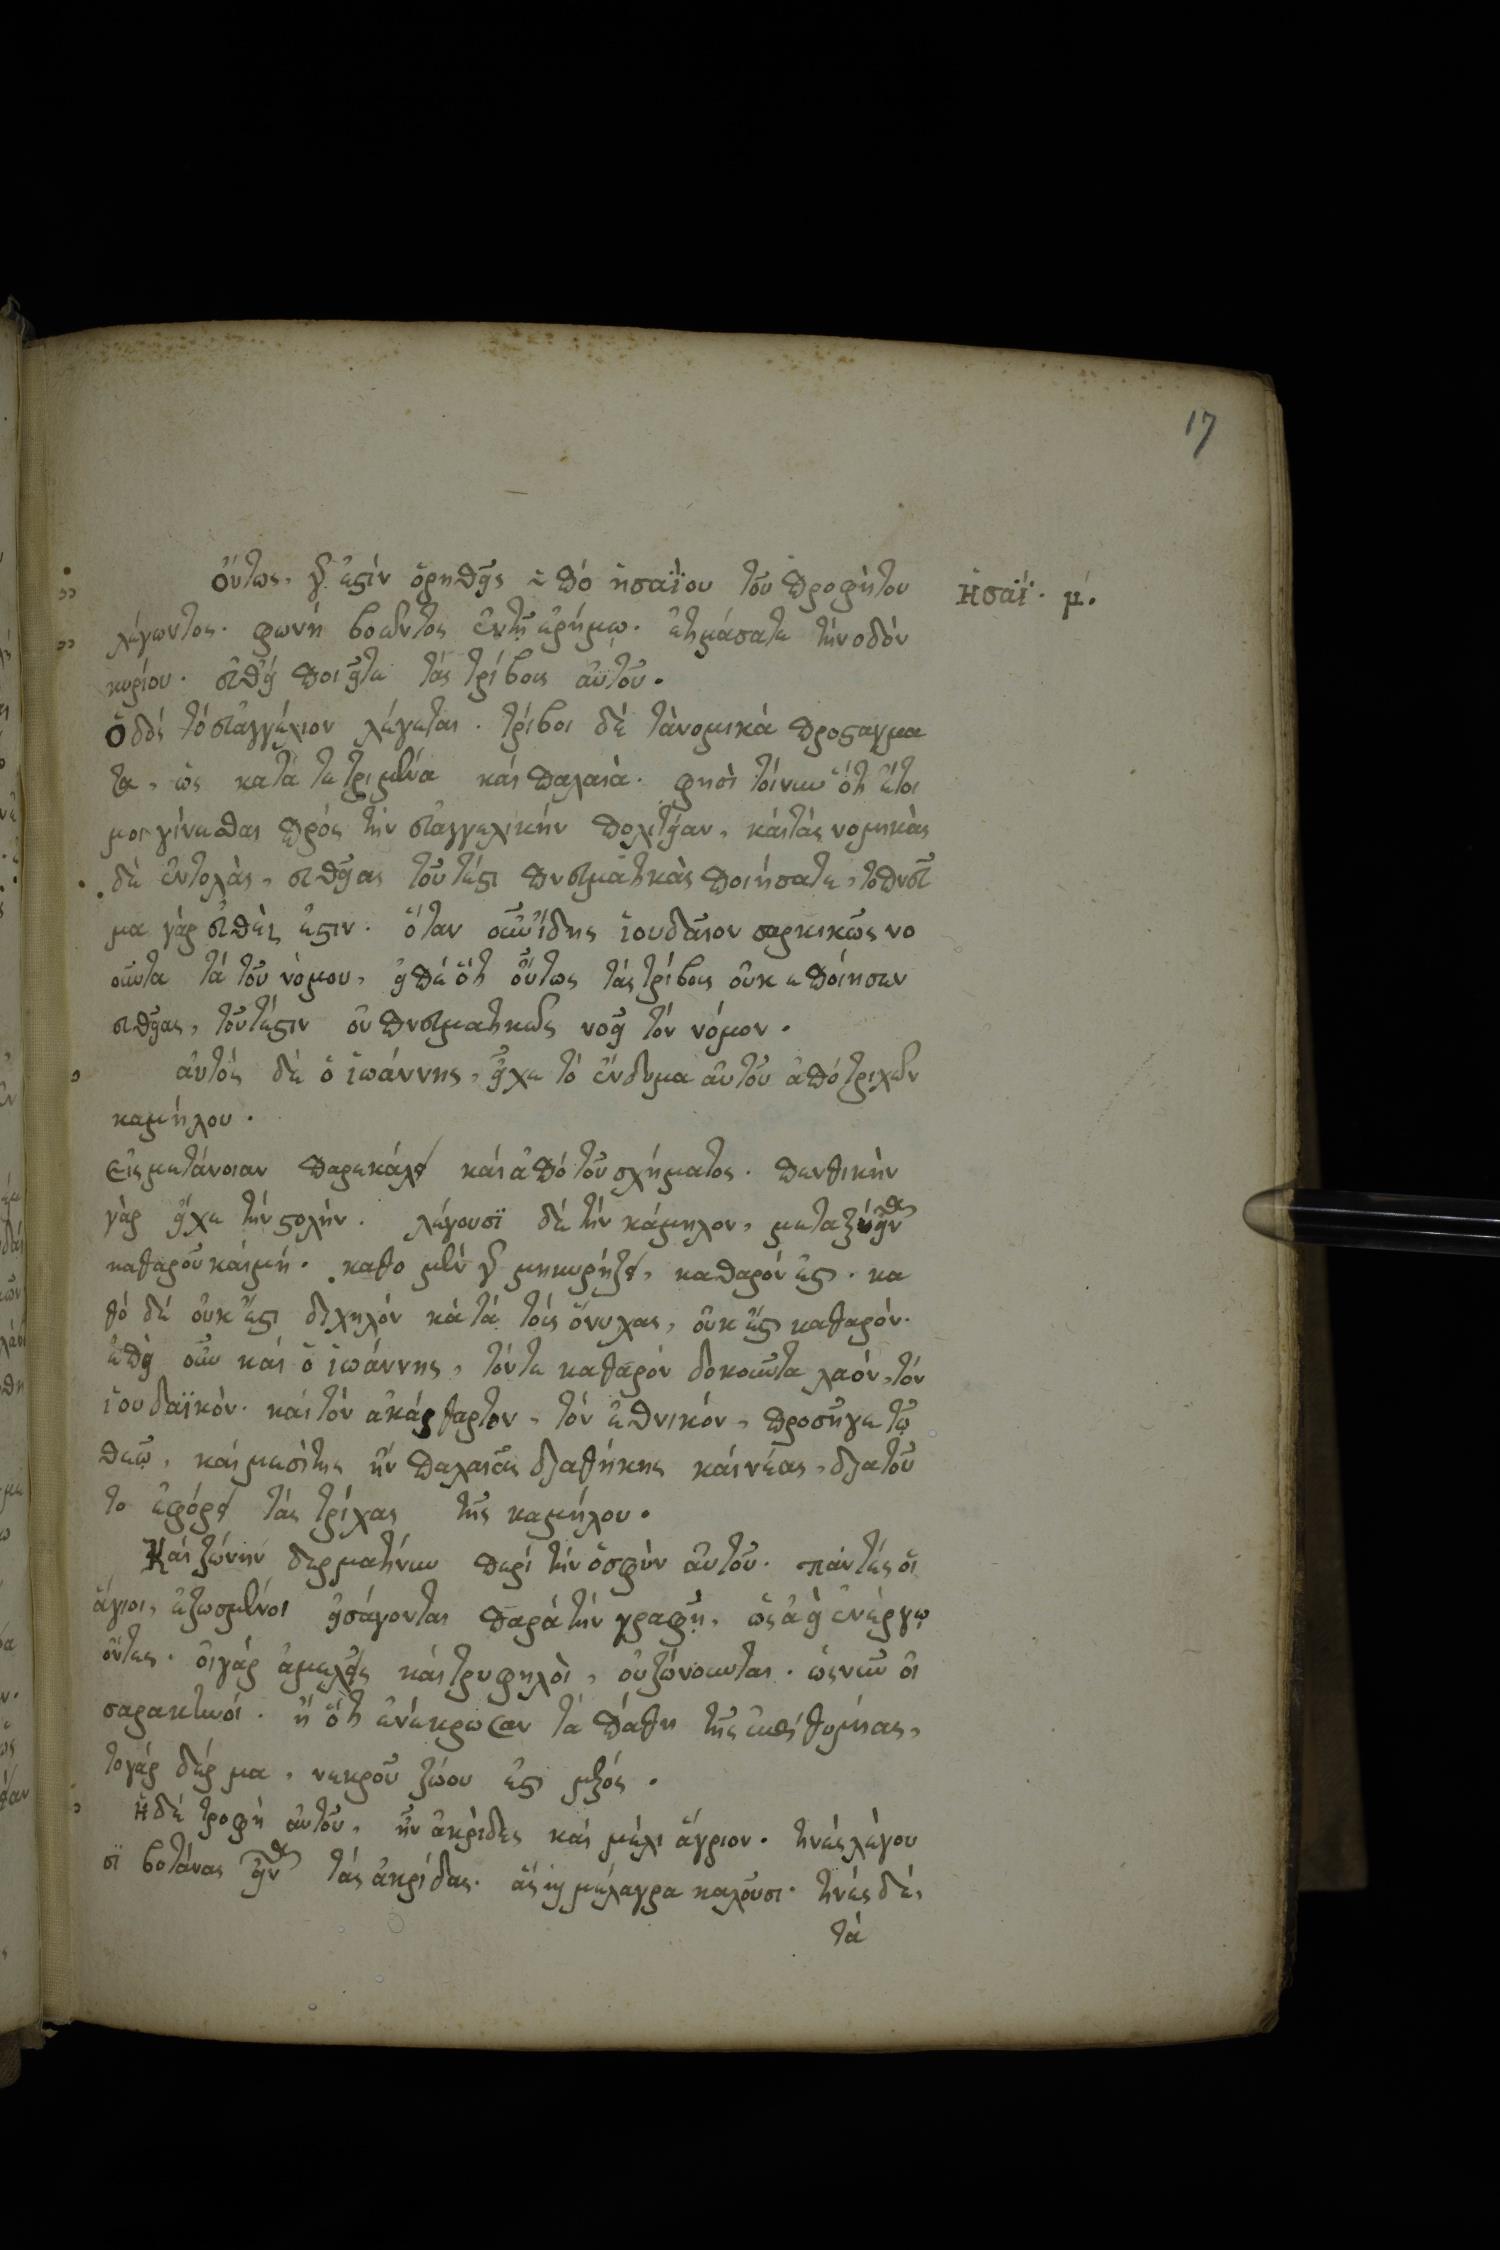 17
Ὅυτως. γάρ ἐστίν ὁρηθεῖς ὑπό ἡσαΐου τοῦ προφήτου
Ἡσαΐ. μ.
λέγωντος. φωνή βοῶντος ἐντῇ ἐρήμω. ἑτιμάσατε τήν οδόν
κυρίου. εὐθεί ποιεῖτε τάς τρίβους ἀυτοῦ.
Ὁδός τό εὐαγγέλιον λέγεται. τρίβοι δέ τὰνομικά προσταγμα
τα, ὡς κατά τετριμμένα καί παλαιὰ. φησὶ τοίνυν ὅτι ἕτοι
μοι γίνεσθαι πρός τήν εὐαγγελικήν πολιτείαν, καίτάς νομηκὰς
δέ ἐντολὰς, εὐθείας τοῦτέστι πνευματικὰς ποιήσατε, τοπνεῦ
μα γάρ εὐθές ἐστιν. ὅταν οὖν ἴδης ἰουδαῖον σαρκικῶς νο
οῦντα τά τοῦ νόμου, εἰπέ ὅτι οὗτως τάς τρίβους οὐκ εποίησεν
ευθείας, τοῦτέστιν οὐ πνευματικῶς νοεῖ τόν νόμον.
ἀυτός δέ ὁ ἰωάννης, εἶχε τό ἔνδυμα ἀυτοῦ ἀπό τριχῶν
καμήλου.
Εἰςμετάνοιαν παρεκάλει καί ἀπό τοῦ σχήματος. πενθικήν
γὰρ εἶχε τήνστολήν. λέγουσϊ δέ τήν κάμηλον, μεταξύεἶναι
καθαροῦ καίμή. καθο μέν γάρ μηκυρήζει, καθαρόν ἐστι. κα
θό δέ ουκ ἔστι διχηλόν κάτά τούς ὄνυχας, οὐκ ἔστι καθαρόν.
ἐπεί οὖν καί ὁ ἰωάννης, τόντε καθαρόν δοκοῦντα λαόν, τόν
ἰουδαϊκὸν. καίτόν ακάρθαρτον, τόν ἐθνικόν, προσῆγε τῷ
θεῷ, καί μεσίτης ἦν παλαιᾶς διαθήκης καίνέας, διατοῦ
το εφόρει τάς τρίχας τῆς καμήλου.
Καίζώνην δερματίνην περί τήν ὀσφύν ἀυτοῦ. πάντές οἱ
ἅγιοι, ἐζωσμένοι εἰσάγονται παρά τήν γραφῇ, ὡς ἀεί ἐνέργῳ
ὄντες. ὁιγάρ ἀμελεῖς καίτρυφηλοί, οὐζώνουνται. ὡςνῦν ὁι
σαρακηνοί. ἤ ὅτι ἐνέκρωσαν τά πάθη τῆς ἐπιθυμίας,
τογάρ δέρμα, νεκροῦ ζώου ἐστι μέρος.
Ἡδέ τροφή ἀυτοῦ, ἦν ἀκρίδες καί μέλι ἄγριον. τινές λέγου
σϊ βοτάνας εἶναι τάς ἀκρίδας. ἅς καί μέλαγρα καλοῦσι. τινές δέ,
τά